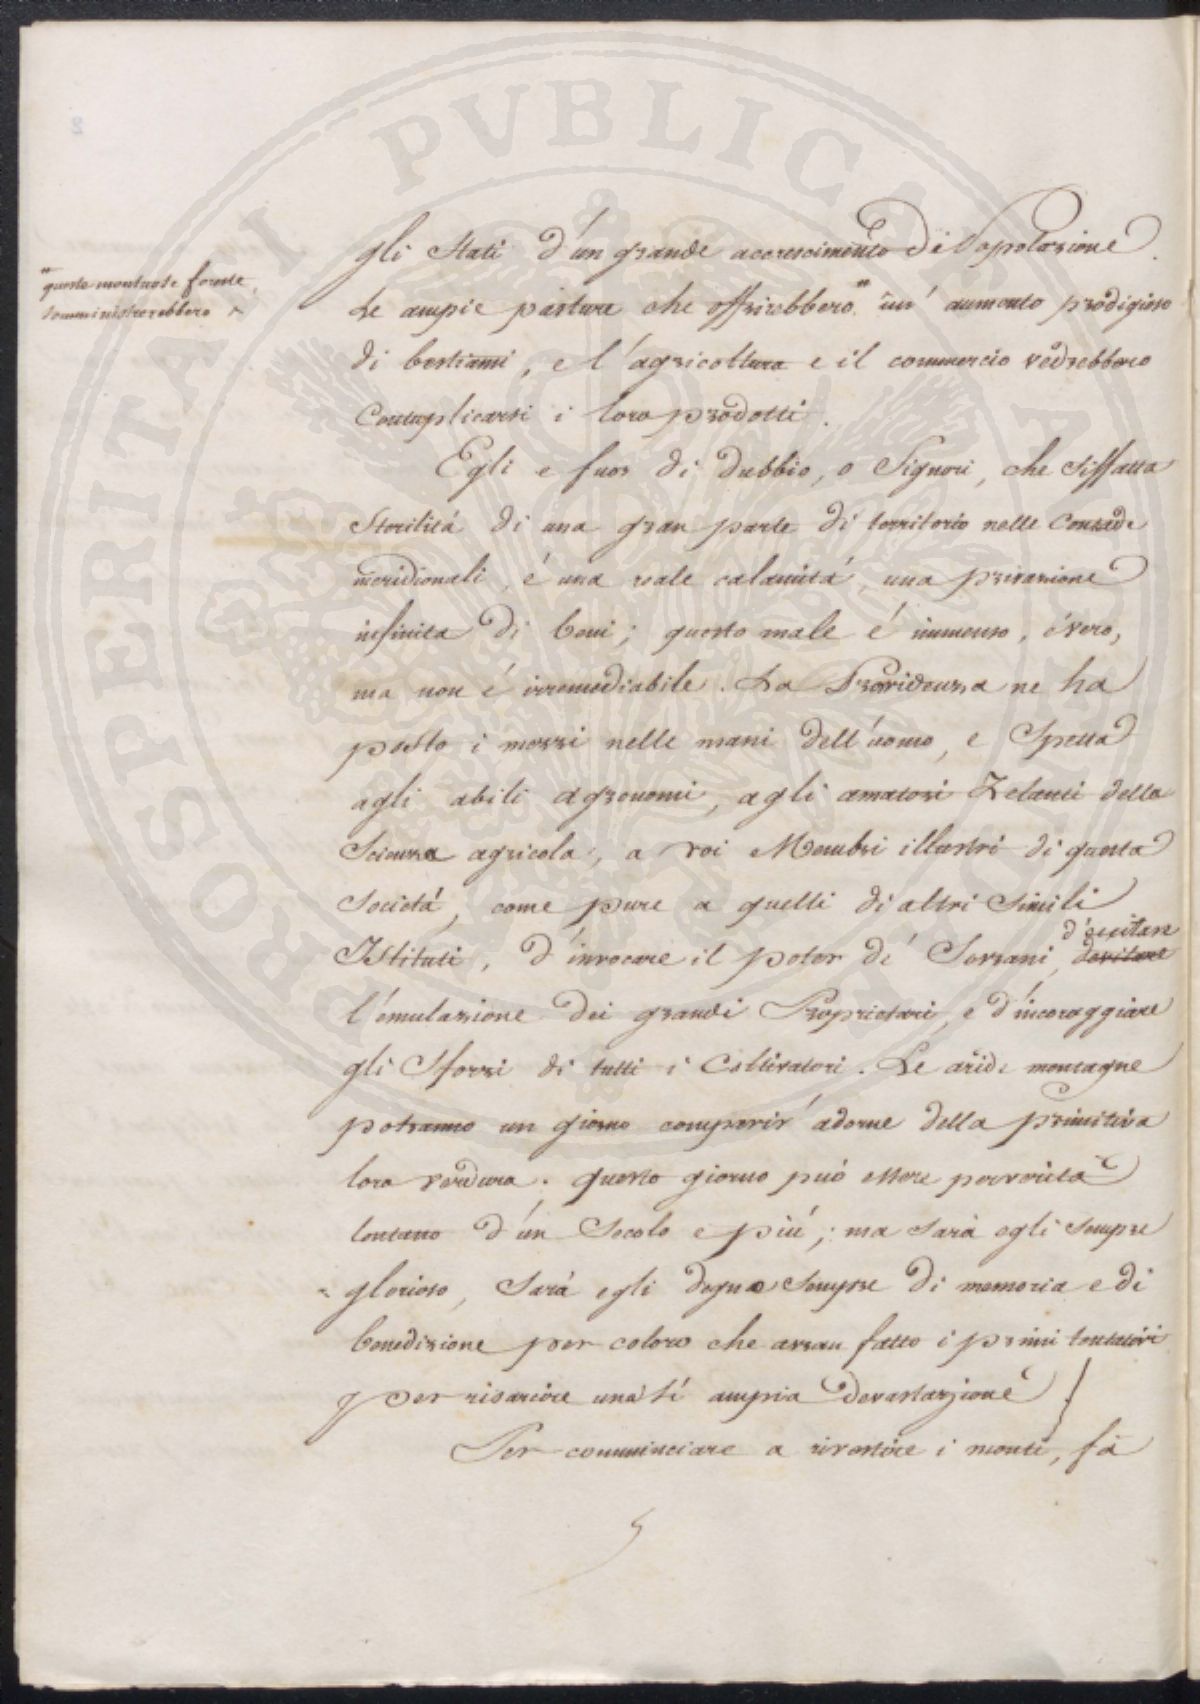 gli Stati d'un grande accrescimento di Popolazione.
"queste montuose foreste,
somministrerebbero
Le ampie pasture che offrirebbero" un' aumento prodigioso
di bestiami, e l'agricoltura e il commercio vedrebbero
Centuplicarsi i loro prodotti.
Egli e fuor di dubbio, o Signori, che siffatta
Sterilitá di una gran parte di territorio nelle Contrade
meridionali, é una reale calamitá, una privazione
infinita di beni; questo male é immenso, é vero,
ma non é irremediabile. La Providenza ne ha
posto i mezzi nelle mani dell'uomo, e Spetta
agli abili agronomi, agli amatori Zelanti della
Scienza agricola, a voi Membri illustri di questa
Societá, come pure a quelli di altri Simili
d'eccitare
Istituti, d'invocare il poter dé Sovrani, devitare
l'emulazione dei grandi Proprietari, e d'incoraggiare
gli Sforzi di tutti i Coltivatori. Le aride montagne
potranno un giorno comparir' adorne della primitiva
loro verdura. questo giorno puó essere
lontano d'un Secolo e piú; ma Sará egli Sempre
glorioso, Sará egli degno Sempre di memoria e di
benedizione per coloro che avran fatto i primi tentativi
per risarcire una sí ampia devastazione
Per comminciare a rivestire i monti, fá
PROSPERITATI PVBLICAE AVGENDAE
2